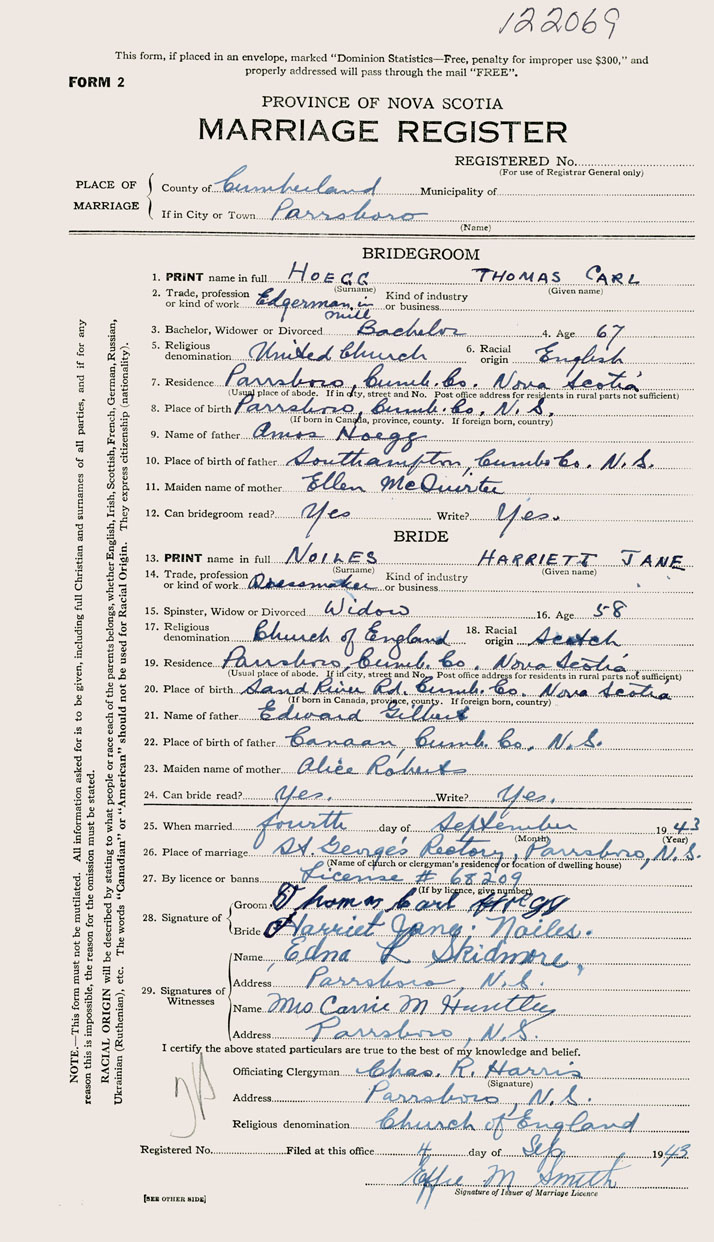 122069
This form, if placed in an envelope, marked "Dominion Statistics—Free, penalty for improper use $300," and
properly addressed will pass through the mail "FREE".
FORM 2
PROVINCE OF NOVA SCOTIA
MARRIAGE REGISTER
REGISTERED No.
(For use of Registrar General only)
PLACE OF MARRIAGE
County of Cumberland Municipality of
If in City or Town Parrsboro
(Name)
BRIDEGROOM
1. PRINT name in full HOEGG THOMAS CARL
(Surname) (Given name)
2. Trade, profession or kind of work Edgerman in mill Kind of industry or business
3. Bachelor, Widower or Divorced Bachelor 4. Age 67
5. Religious denomination United Church 6. Racial origin English
7. Residence Parrsboro, Cumb. Co. Nova Scotia
(Usual place of abode. If in city, street and No. Post office address for residents in rural parts not sufficient)
8. Place of birth Parrsboro, Cumb. Co. N.S.
(If born in Canada, province, county. If foreign born, country)
9. Name of father Amos Hoegg
10. Place of birth of father Southampton, Cumb. Co. N.S.
11. Maiden name of mother Ellen McQuirter
12. Can bridegroom read? Yes Write? Yes.
BRIDE
13. PRINT name in full NOILES HARRIETT JANE
(Surname) (Given name)
14. Trade, profession or kind of work Dressmaker Kind of industry or business
15. Spinster, Widow or Divorced Widow 16. Age 58
17. Religious denomination Church of England 18. Racial origin Scotch
19. Residence Parrsboro, Cumb. Co. Nova Scotia
(Usual place of abode. If in city, street and No. Post office address for residents in rural parts not sufficient)
20. Place of birth Sand River Rd. Cumb. Co. Nova Scotia
(If born in Canada, province, county. If foreign born, country)
21. Name of father Edward Gilbert
22. Place of birth of father Canaan, Cumb. Co., N.S.
23. Maiden name of mother Alice Roberts
24. Can bride read? Yes. Write? Yes.
25. When married fourth day of September 1943
(Month) (Year)
26. Place of marriage St George's Rectory, Parrsboro, N.S.
(Name of church or clergyman's residence or location of dwelling house)
27. By licence or banns License # 68209
(If by licence, give number)
28. Signature of
Groom Thomas Carl Hoegg
Bride Harriet Jane Noiles.
29. Signatures of Witnesses
Name Edna L Skidmore,
Address Parrsboro, N.S.
Name Mrs Carrie M Huntley
Address Parrsboro, N.S.
I certify the above stated particulars are true to the best of my knowledge and belief.
Officiating Clergyman Chas. R. Harris
(Signature)
Address Parrsboro, N.S.
Religious denomination Church of England
Registered No. Filed at this office 4 day of Sep 1943
Effie M Smith
Signature of Issuer of Marriage Licence
[SEE OTHER SIDE]
NOTE.—This form must not be mutilated. All information asked for is to be given, including full Christian and surnames of all parties, and if for any
reason this is impossible, the reason for the omission must be stated.
RACIAL ORIGIN will be described by stating to what people or race each of the parents belongs, whether English, Irish, Scottish, French, German, Russian,
Ukrainian (Ruthenian), etc. The words "Canadian" or "American" should not be used for Racial Origin. They express citizenship (nationality).